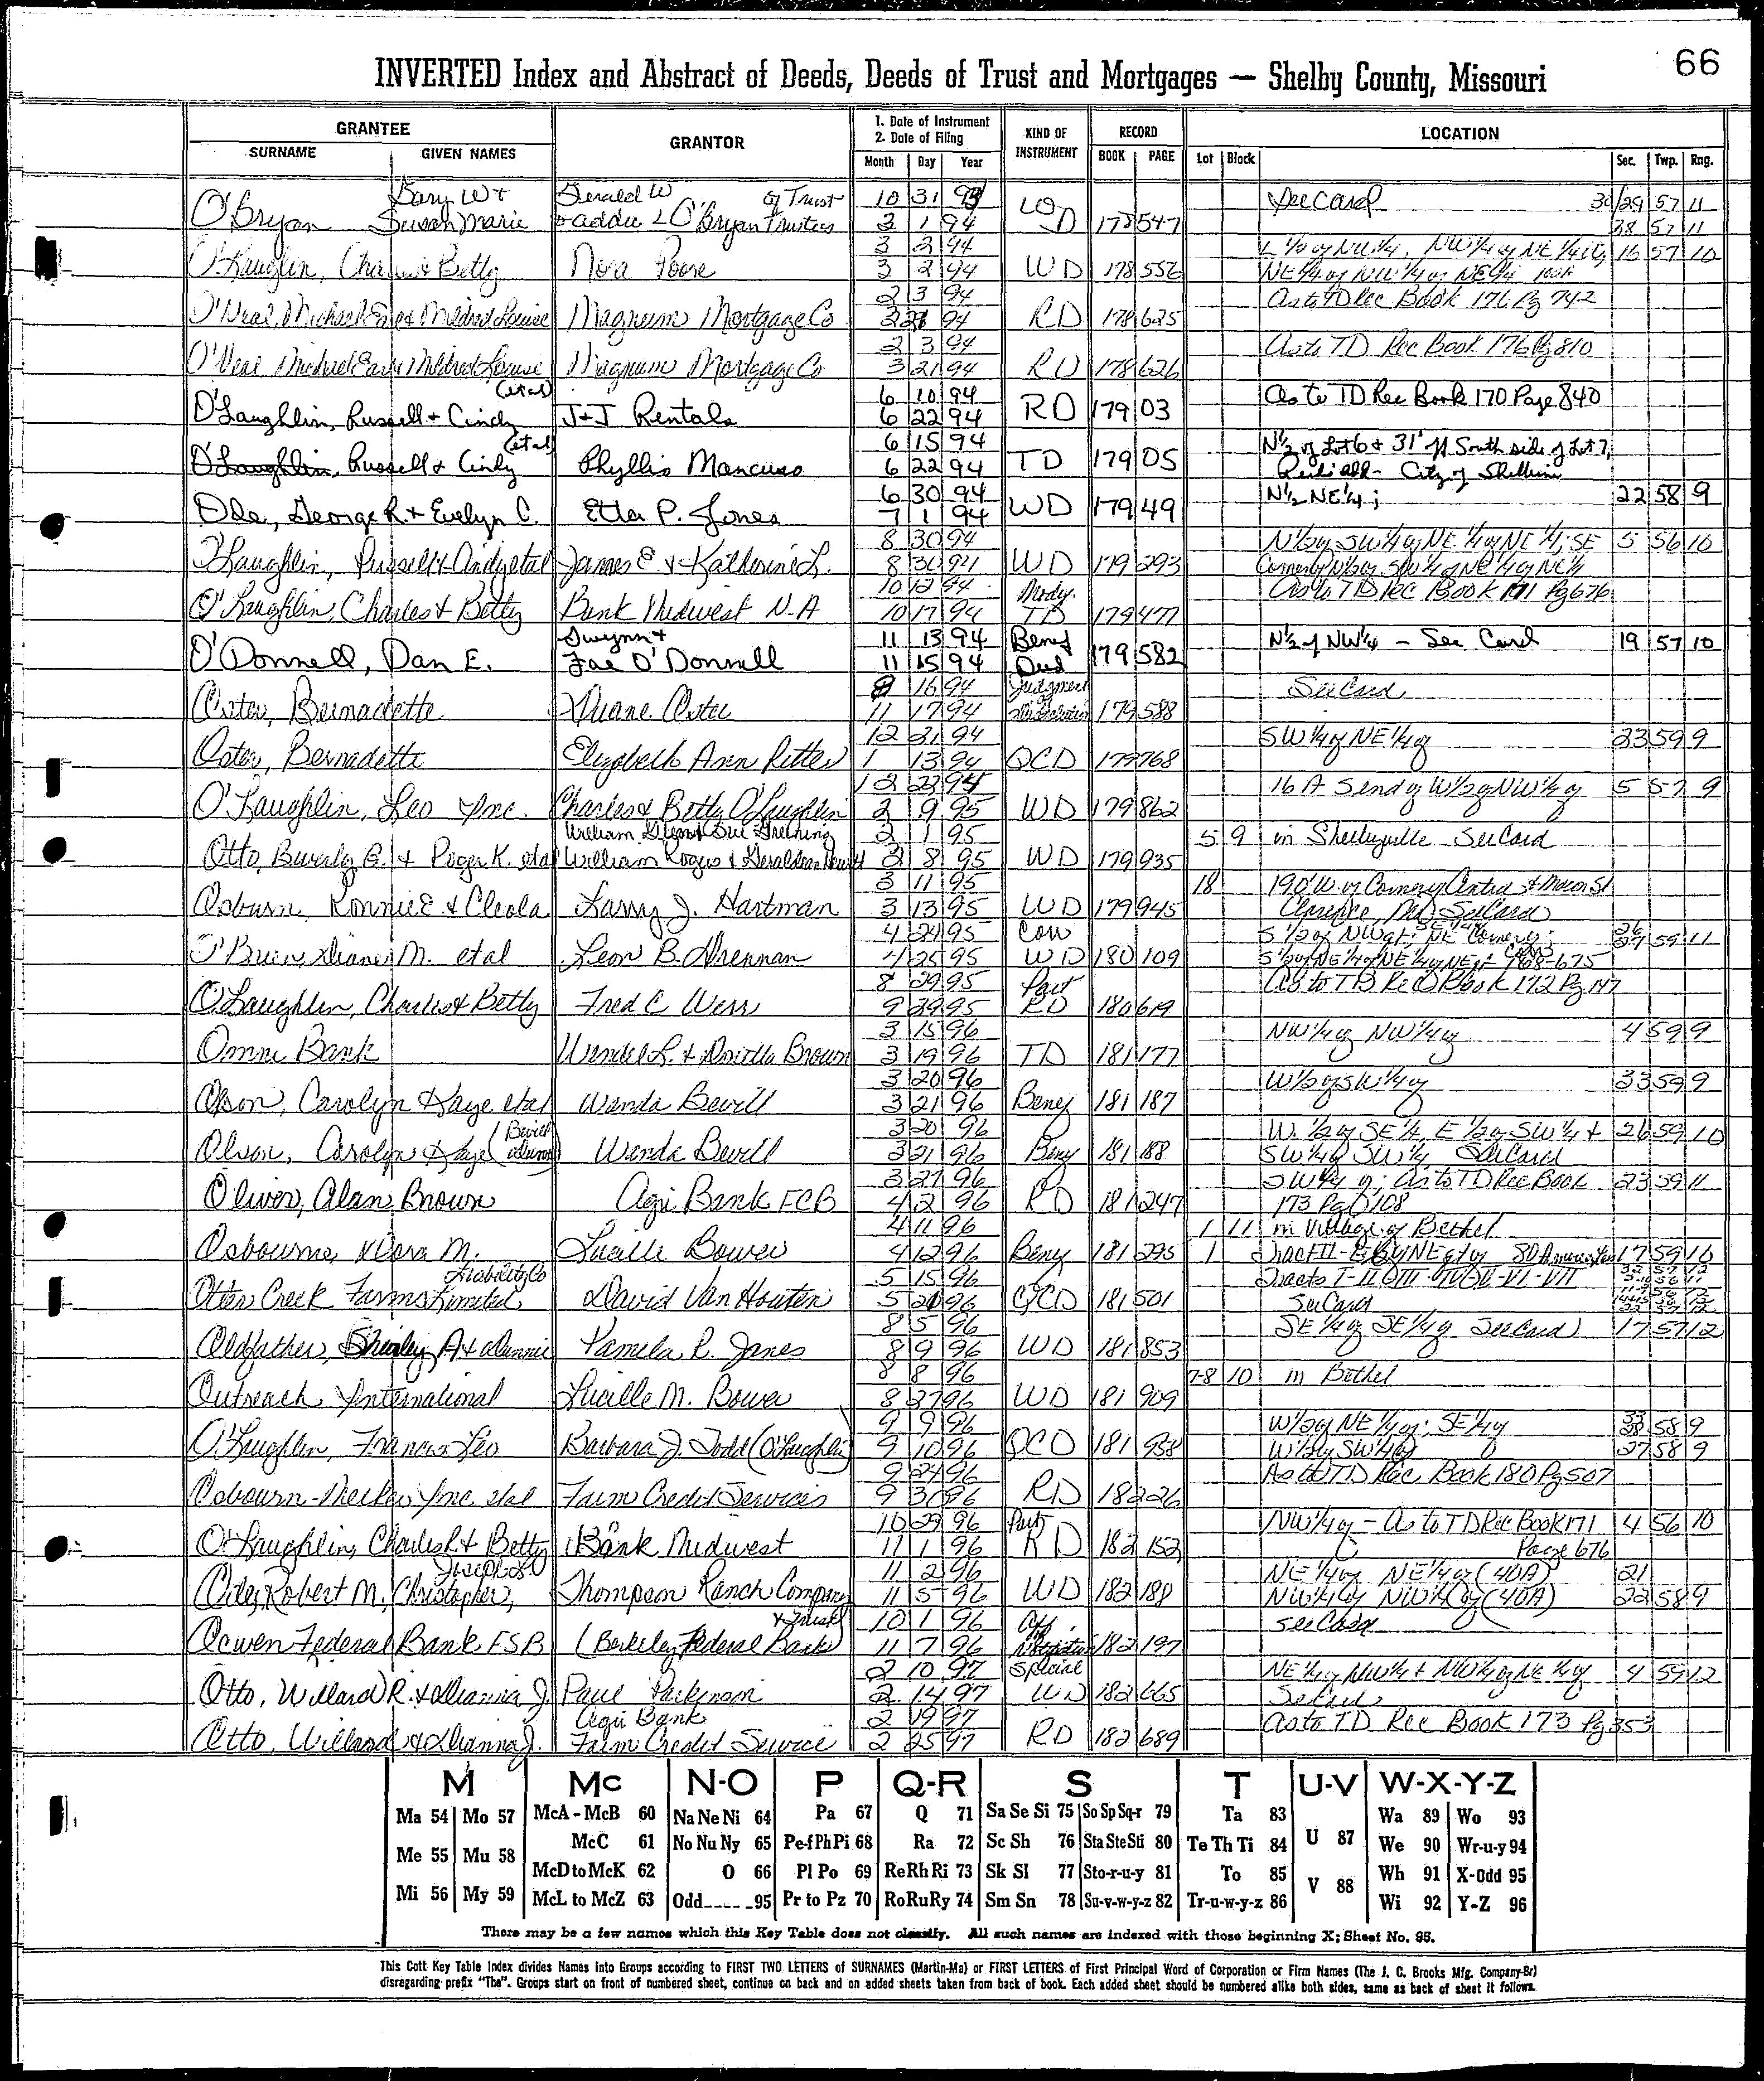 66
INVERTED Index and Abstract of Deeds, Deeds of Trust and Mortgages — Shelby County, Missouri
GRANTEE
SURNAME GIVEN NAMES
GRANTOR
1. Date of Instrument
2. Date of Filing
Month Day Year
KIND OF INSTRUMENT
RECORD
BOOK PAGE
LOCATION
Lot Block Sec. Twp. Rng.
Gary W + Gerald W of Trust 10 31 93 See Card 29 57 11
O'Bryan Susan Marie O'Bryan Trustees 3 1 94 WD 178 547 57 11
3 2 94 NW 1/4 of NE 1/4 16 57 10
O'Laughlin, Charles & Betty Nora Poore 3 2 94 WD 178 556 NE 1/4 of NW 1/4 of NE 1/4
2 3 94 As to TD Rec Book 176 Pg 742
O'Neal, Michael Earl & Mildred Louise Magnum Mortgage Co 3 21 94 RD 178 625
2 3 94 As to TD Rec Book 176 Pg 810
O'Neal Michael Earl & Mildred Louise Magnum Mortgage Co 3 21 94 RD 178 626
(etal) 6 10 94 As to TD Rec Book 170 Page 840
O'Laughlin, Russell + Cindy J+J Rentals 6 22 94 RD 179 03
(etal) 6 15 94 N 1/2 of Lot 6 + 31' off South side of Lot 7,
O'Laughlin, Russell + Cindy Phyllis Mancuso 6 22 94 TD 179 05 City of Shelbina
6 30 94 N 1/2 NE 1/4; 22 58 9
Ode, George R. + Evelyn C. Etta P. Jones 7 1 94 WD 179 49
8 30 94 N 1/2 of SW 1/4 of NE 1/4 of NE 1/4; SE 5 56 10
O'Laughlin, Russell & Cindy etal James E. & Katherine L. 8 30 94 WD 179 293 Corner of N 1/2 of SW 1/4 of NE 1/4 of NE 1/4
10 12 94 Mody. As to TD Rec Book 171 Pg 676
O'Laughlin, Charles & Betty Bank Midwest N.A 10 17 94 TD 179 477
Gwynn + 11 13 94 Benef N 1/2 of NW 1/4 - See Card 19 57 10
O'Donnell, Dan E. Fae O'Donnell 11 15 94 Deed 179 582
9 16 94 Judgment See Card
Oster, Bernadette Duane Oster 11 17 94 179 588
12 21 94 SW 1/4 of NE 1/4 of 33 59 9
Oster, Bernadette Elizabeth Ann Ritter 1 13 94 QCD 179 768
12 22 94 16 A S end of W 1/2 of NW 1/4 of 5 57 9
O'Laughlin, Leo Inc. Charles & Betty O'Laughlin 2 9 95 WD 179 862
2 1 95 5 9 in Shelbyville See Card
Otto, Beverly G. & Roger K. etal William Rogers & Geraldean 3 8 95 WD 179 935
3 11 95 18 190' W. of Corner of Central & Macon St
Osburn Ronnie E. & Cleola Larry J. Hartman 3 13 95 WD 179 945 Clarence, Mo See Card
4 24 95 Corr 59 11
O'Brien, Diane M. etal Leon B. Drennan 4 25 95 WD 180 109
8 29 95 Part As to TD Rec Book 172 Pg 147
O'Laughlin, Charles & Betty Fred C Wess 9 29 95 RD 180 619
3 15 96 NW 1/4 of NW 1/4 of 4 59 9
Omni Bank Wendel L. & Donietta Brown 3 19 96 TD 181 177
3 20 96 W 1/2 of SW 1/4 of 33 59 9
Olson, Carolyn Kaye etal Wanda Bevill 3 21 96 Benef 181 187
(Bevill 3 20 96 W. 1/2 of SE 1/4, E 1/2 of SW 1/4 + 26 59 10
Olson, Carolyn Kaye Wanda Bevill 3 21 96 Benef 181 188 SW 1/4 of SW 1/4 See Card
3 27 96 SW 1/4 of; As to TD Rec Book 23 59 11
Oliver, Alan Brown Agri Bank FCB 4 2 96 RD 181 247 173 Pg 0108
4 11 96 1 11 in Village of Bethel
Osbourne, Dora M. Lucille Bower 4 12 96 Benef 181 295 1 17 59 10
Liability Co 5 15 96 Tracts I-II
Otter Creek Farms Limited David Van Houten 5 20 96 QCD 181 501 See Card
8 5 96 SE 1/4 of SE 1/4 of See Card 17 57 12
Oldfather, Shirley A & Pamela R. Janes 8 9 96 WD 181 853
8 8 96 7-8 10 in Bethel
Outreach International Lucille M. Bower 8 27 96 WD 181 909
9 9 96 W 1/2 of NE 1/4 of; SE 1/4 of 58 9
O'Laughlin, Francis Leo Barbara J. Todd (O'Laughlin) 9 10 96 QCD 181 958 W 1/2 of SW 1/4 of 27 58 9
9 24 96 As to TD Rec Book 180 Pg 507
Osbourn-Meeker Inc. etal Farm Credit Services 9 30 96 RD 182 26
10 29 96 Part NW 1/4 of - As to TD Rec Book 171 4 56 10
O'Laughlin, Charles R & Betty Bank Midwest 11 1 96 RD 182 152 Page 676
Joseph 11 2 96 NE 1/4 of NE 1/4 of (40A) 21
Robert M. Christopher, Thompson Ranch Company 11 5 96 WD 182 188 NW 1/4 of NW 1/4 of (40A) 22 58 9
10 1 96 See Card
Ocwen Federal Bank FSB (Berkeley Federal Bank 11 7 96 182 197
2 10 97 Special NE 1/4 of NW 1/4 & NW 1/4 of NE 1/4 of 4 59 12
Otto, Willard R. & Dianna J. Paul Parkinson 2 14 97 WD 182 665 See Card
Agri Bank 2 19 97 As to TD Rec Book 173 Pg 353
Otto, Willard & Dianna J. Farm Credit Service 2 25 97 RD 182 689
M Mc N-O P Q-R S T U-V W-X-Y-Z
Ma 54 Mo 57 McA - McB 60 Na Ne Ni 64 Pa 67 Q 71 Sa Se Si 75 So Sp Sq-r 79 Ta 83 Wa 89 Wo 93
Me 55 Mu 58 McC 61 No Nu Ny 65 Pe-f Ph Pi 68 Ra 72 Sc Sh 76 Sta Ste Sti 80 Te Th Ti 84 U 87 We 90 Wr-u-y 94
McD to McK 62 O 66 Pl Po 69 Re Rh Ri 73 Sk Sl 77 Sto-r-u-y 81 To 85 V 88 Wh 91 X-Odd 95
Mi 56 My 59 McL to McZ 63 Odd_____95 Pr to Pz 70 Ro Ru Ry 74 Sm Sn 78 Su-v-w-y-z 82 Tr-u-w-y-z 86 Wi 92 Y-Z 96
There may be a few names which this Key Table does not classify. All such names are indexed with those beginning X; Sheet No. 95.
This Cott Key Table Index divides Names into Groups according to FIRST TWO LETTERS of SURNAMES (Martin-Ma) or FIRST LETTERS of First Principal Word of Corporation or Firm Names (The J. C. Brooks Mfg. Company-Br)
disregarding prefix "The". Groups start on front of numbered sheet, continue on back and on added sheets taken from back of book. Each added sheet should be numbered alike both sides, same as back of sheet it follows.